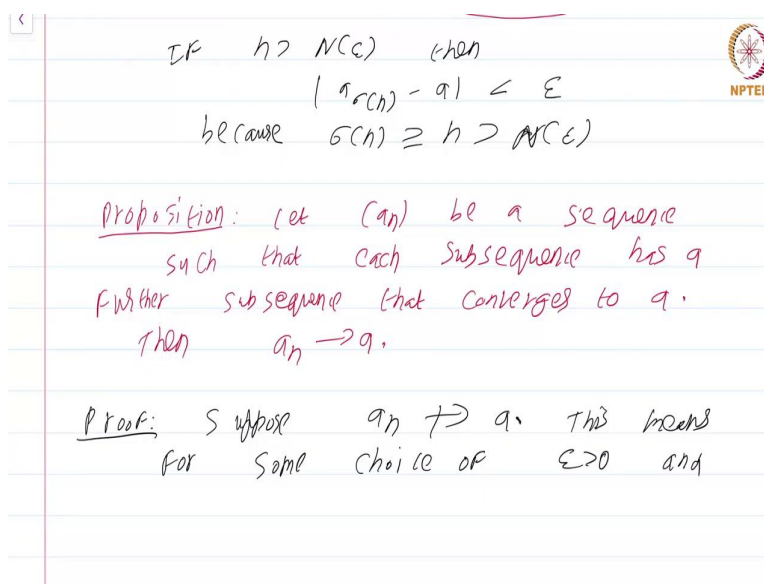 IF n > N(ε) then
|a_σ(n) - a| < ε
because σ(n) ≥ n > N(ε)
NPTEL
Proposition: Let (an) be a sequence
such that each subsequence has a
further subsequence that converges to a.
Then an → a.
Proof: Suppose an ↛ a. This means
for some choice of ε>0 and